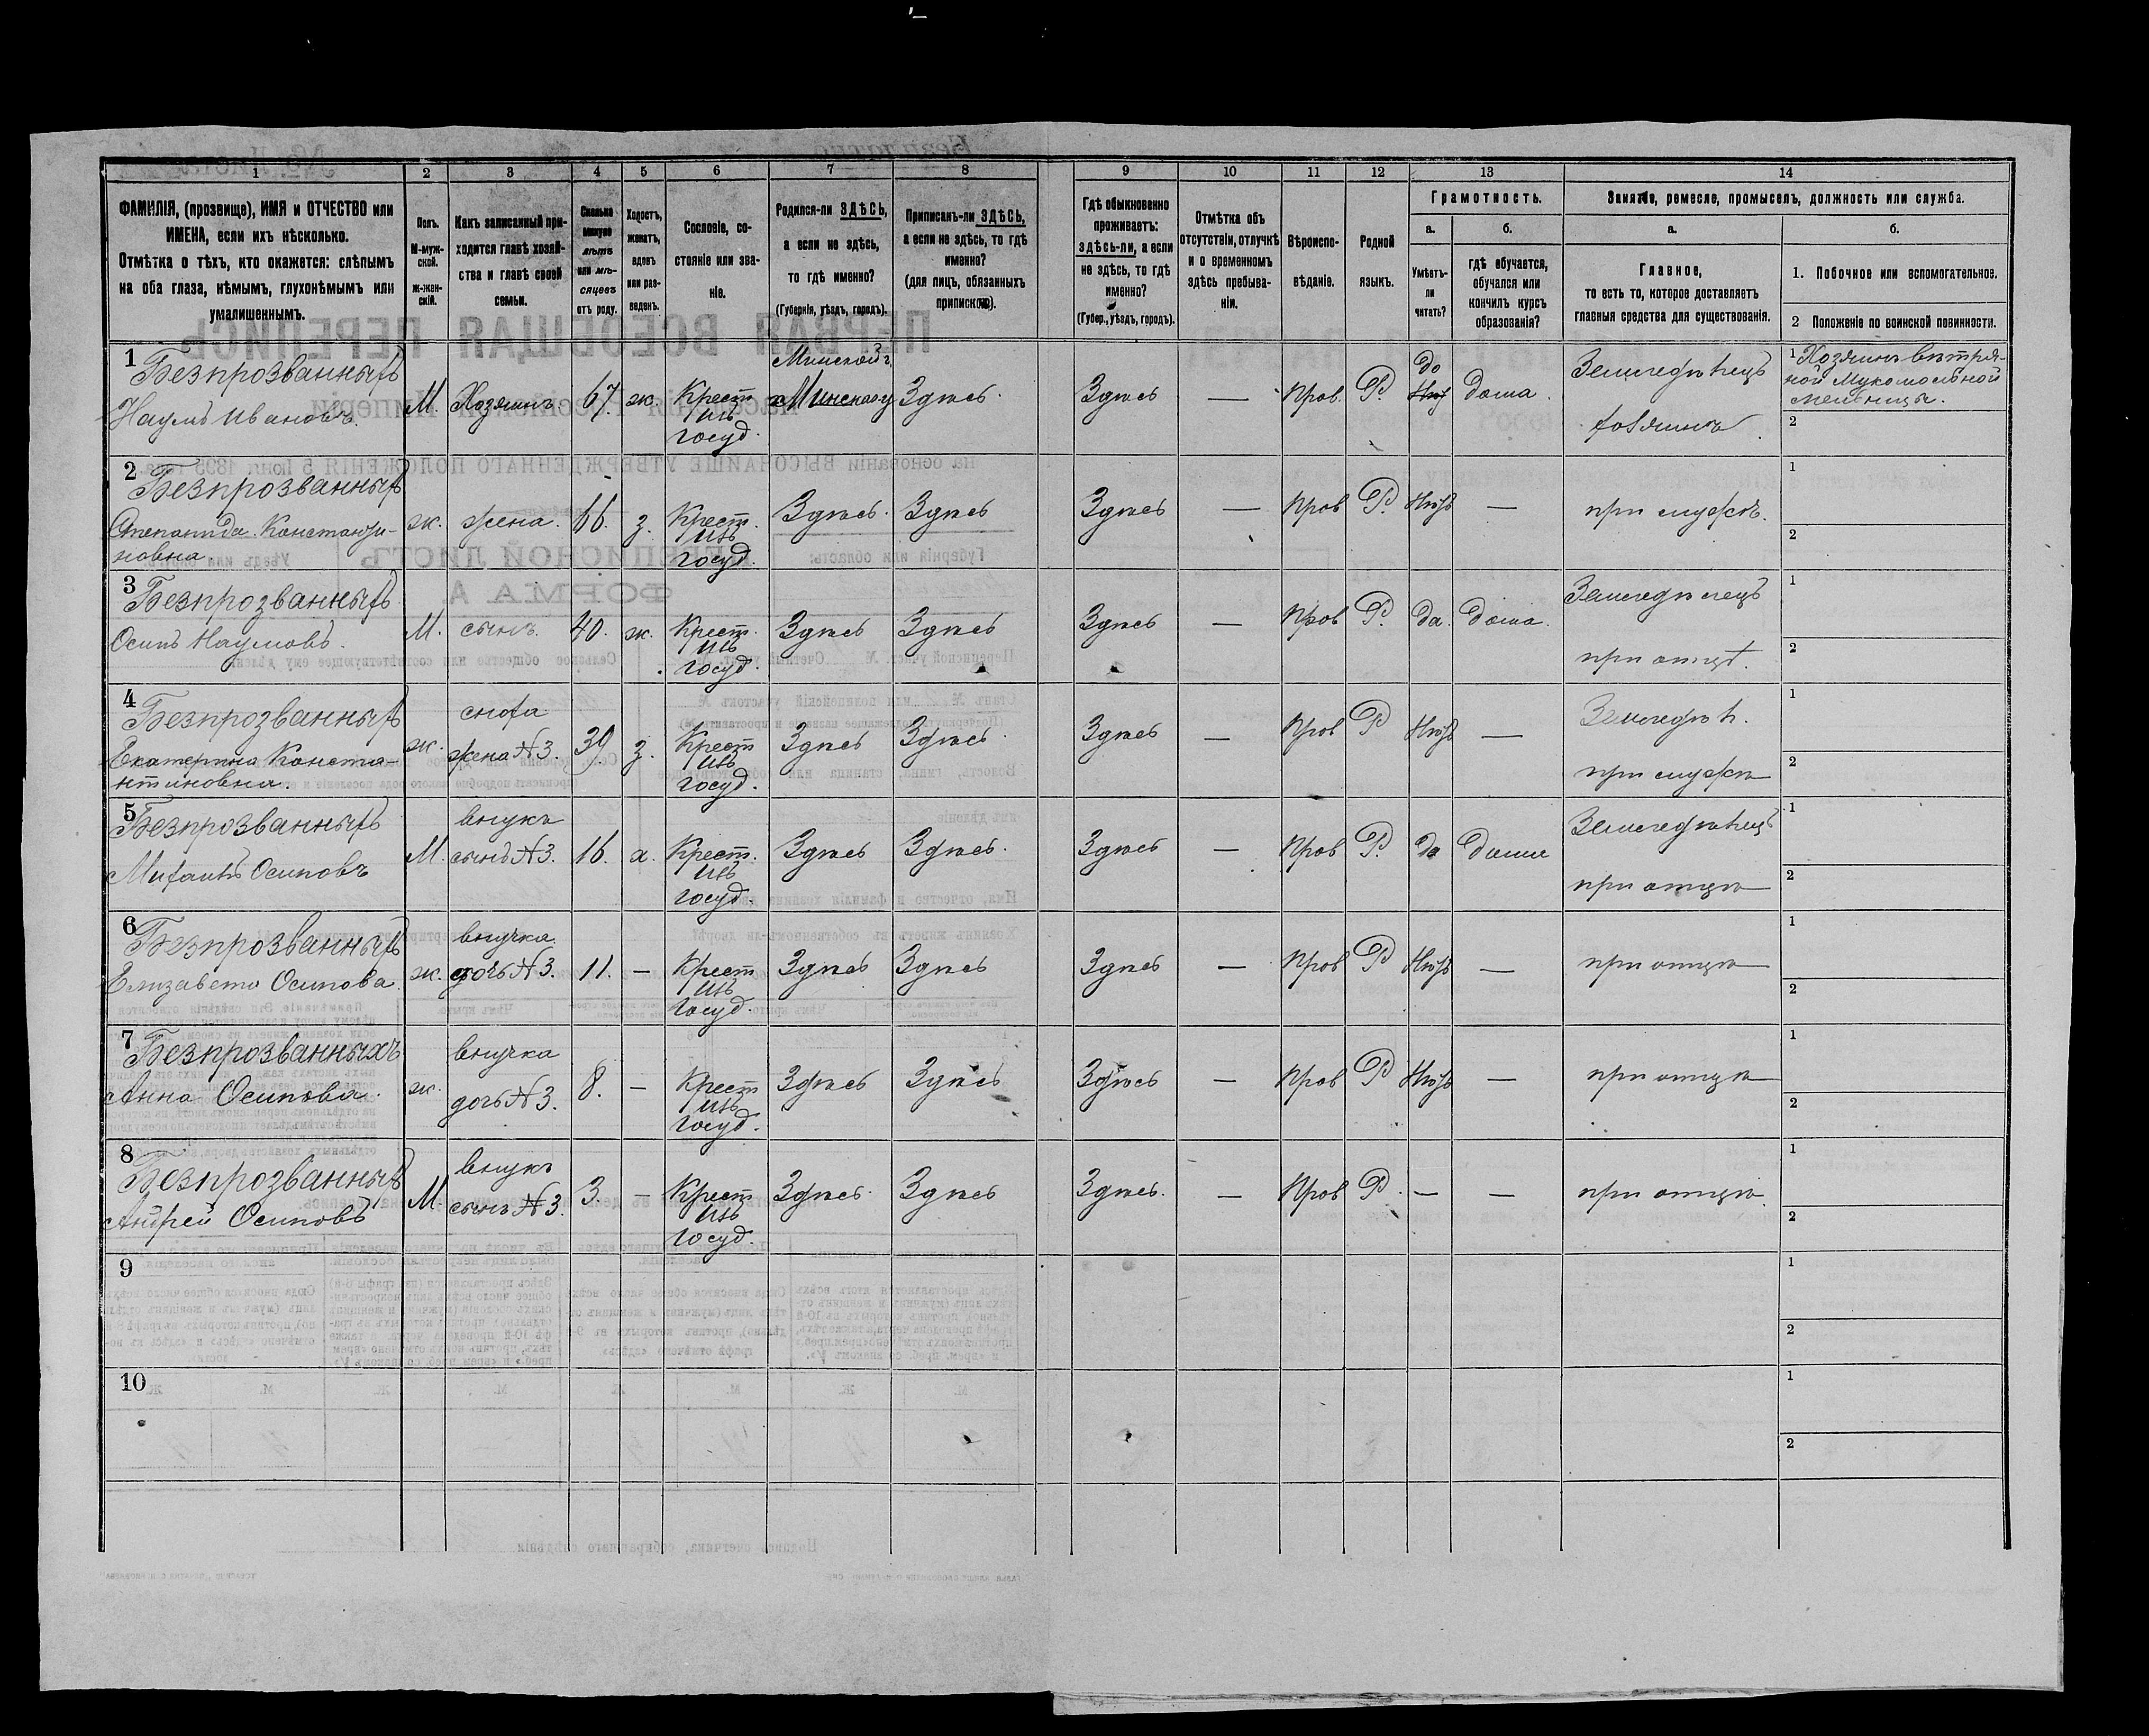 1 2 3 4 5 6 7 8 9 10 11 12 13 14
ФАМИЛІЯ, (прозвище), ИМЯ и ОТЧЕСТВО или
ИМЕНА, если ихъ нѣсколько.
Отмѣтка о тѣхъ, кто окажется: слѣпымъ
на оба глаза, нѣмымъ, глухонѣмымъ или
умалишеннымъ.
Полъ.
М-муж-
ской.
ж-жен-
скій.
Какъ записанный при-
ходится главѣ хозяй-
ства и главѣ своей
семьи.
Сколько
минуло
лѣтъ
или мѣ-
сяцевъ
отъ роду.
Холостъ,
женатъ,
вдовъ
или раз-
веденъ.
Сословіе, со-
стояніе или зва-
ніе.
Родился-ли ЗДѢСЬ,
а если не здѣсь,
то гдѣ именно?
(Губернія, уѣздъ, городъ).
Приписанъ-ли ЗДѢСЬ,
а если не здѣсь, то гдѣ
именно?
(для лицъ, обязанныхъ
припискою).
Гдѣ обыкновенно
проживаетъ:
здѣсь-ли, а если
не здѣсь, то гдѣ
именно?
(Губер., уѣздъ, городъ).
Отмѣтка объ
отсутствіи, отлучкѣ
и о временномъ
здѣсь пребыва-
ніи.
Вѣроиспо-
вѣданіе.
Родной
языкъ.
Грамотность.
а.
Умѣетъ-
ли
читать?
б.
гдѣ обучается,
обучался или
кончилъ курсъ
образованія?
Занятіе, ремесло, промыселъ, должность или служба.
а.
Главное,
то есть то, которое доставляетъ
главныя средства для существованія.
б.
1. Побочное или вспомогательное.
2 Положеніе по воинской повинности.
1 Безпрозванныхъ
Наумъ Ивановъ.
М. Хозяинъ 67. ж. Крест.
изъ
госуд.
Здѣсь. Здѣсь — Пров. Р. Дома.
Земледѣлецъ
хозяинъ
1 Хозяинъ вѣтря-
ной мукомольной
мельницы.
2
2 Безпрозванныхъ
Степанида Константи-
новна.
ж. жена. 66. з. Крест.
изъ
госуд.
Здѣсь. Здѣсь Здѣсь — Пров Р. Нѣтъ —
при мужѣ.
1
2
3 Безпрозванныхъ
Осипъ Наумовъ.
М. сынъ. 40. ж. Крест.
изъ
госуд.
Здѣсь Здѣсь Здѣсь — Пров Р. Да. Дома.
Земледѣлецъ
при отцѣ.
1
2
4 Безпрозванныхъ
Екатерина Конста-
нтиновна.
ж. сноха
жена №3. 39. з. Крест
изъ
госуд.
Здѣсь Здѣсь. Здѣсь — Пров Р Нѣтъ —
Земледѣл.
при мужѣ
1
2
5 Безпрозванныхъ
Михаилъ Осиповъ
М. внукъ
сынъ №3. 16. х. Крест.
изъ
госуд.
Здѣсь Здѣсь. Здѣсь — Пров Р. Да Дома
Земледѣлецъ
при отцѣ
1
2
6 Безпрозванныхъ
Елизавета Осипова.
ж. внучка.
дочь №3. 11. — Крест
изъ
госуд.
Здѣсь Здѣсь Здѣсь — Пров Р Нѣтъ —
при отцѣ
1
2
7 Безпрозванныхъ
Анна Осипова.
ж. внучка
дочь №3. 8. — Крест
изъ
госуд.
Здѣсь Здѣсь Здѣсь — Пров Р Нѣтъ —
при отцѣ
1
2
8 Безпрозванныхъ
Андрей Осиповъ
М. внукъ
сынъ №3. 3. — Крест
изъ
госуд.
Здѣсь. Здѣсь Здѣсь. — Пров Р. — —
при отцѣ
1
2
9
1
2
10
1
2